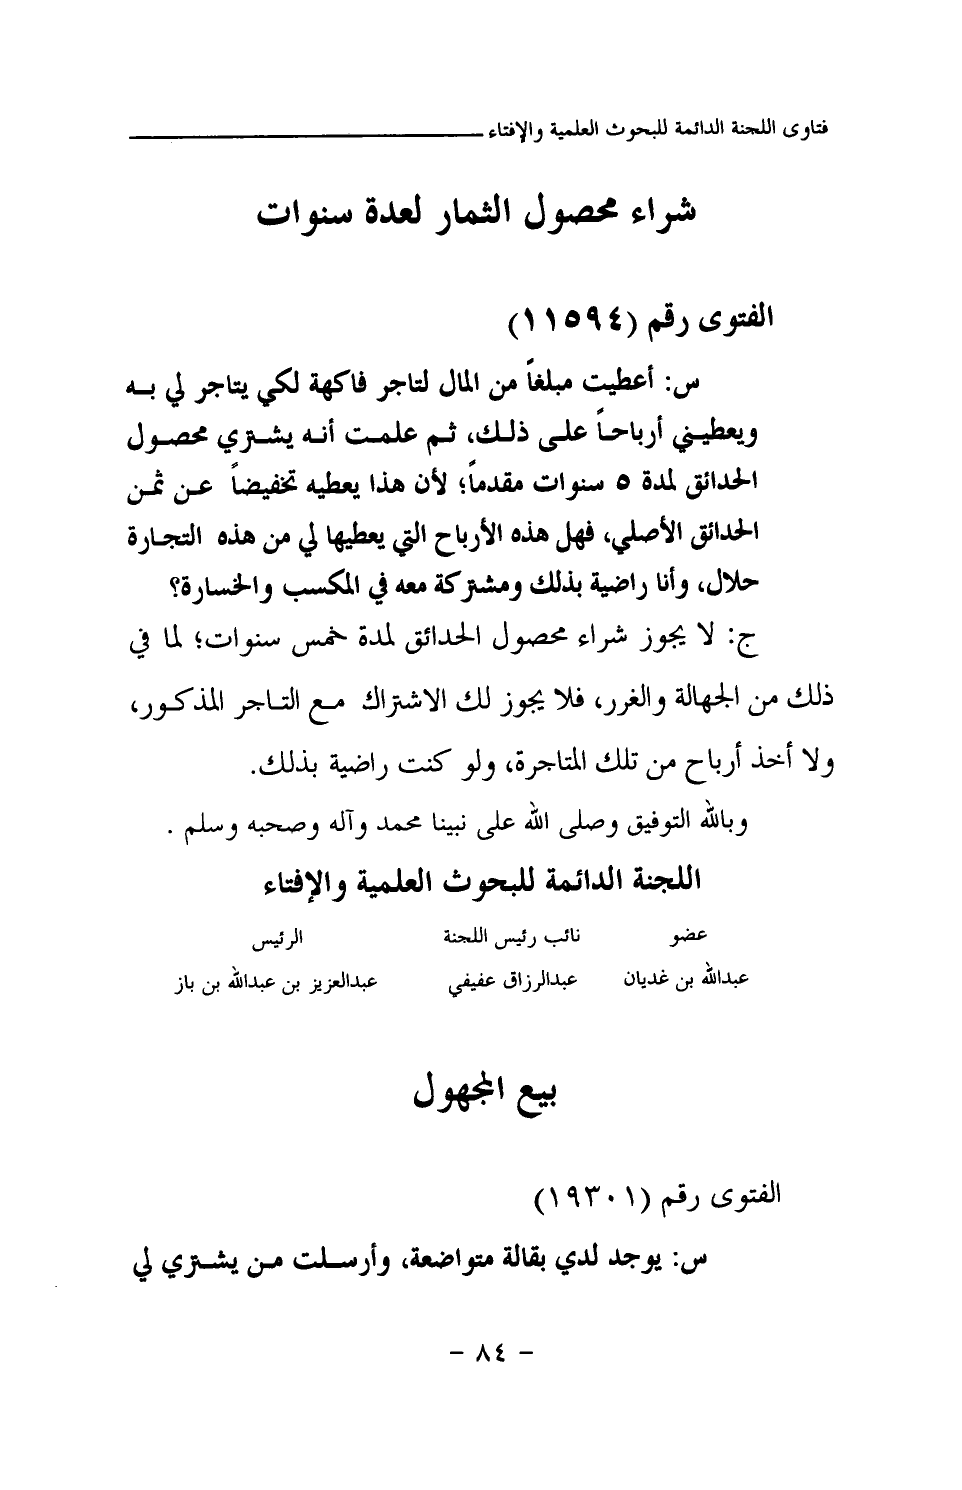 فتاوى اللجنة الدائمة للبحوث العلمية والإفتاء
شراء محصول الثمار لعدة سنوات
الفتوى رقم (١١٥٩٤)
س: أعطيت مبلغاً من المال لتاجر فاكهة لكي يتاجر لي بـه
ويعطيـني أرباحـاً علـى ذلـك، ثـم علمـت أنـه يشـتري محصـول
الحدائق لمدة ٥ سنوات مقدماً؛ لأن هذا يعطيه تخفيضاً عـن ثمـن
الحدائق الأصلي، فهل هذه الأرباح التي يعطيها لي من هذه التجـارة
حلال، وأنا راضية بذلك ومشتركة معه في المكسب والخسارة؟
ج: لا يجوز شراء محصول الحدائق لمدة خمس سنوات؛ لما في
ذلك من الجهالة والغرر، فلا يجوز لك الاشتراك مـع التـاجر المذكـور،
ولا أخذ أرباح من تلك المتاجرة، ولو كنت راضية بذلك.
وبالله التوفيق وصلى الله على نبينا محمد وآله وصحبه وسلم .
اللجنة الدائمة للبحوث العلمية والإفتاء
عضو نائب رئيس اللجنة الرئيس
عبدالله بن غديان عبدالرزاق عفيفي عبدالعزيز بن عبدالله بن باز
بيع المجهول
الفتوى رقم (١٩٣٠١)
س: يوجد لدي بقالة متواضعة، وأرسـلت مـن يشـتري لي
- ٨٤ -